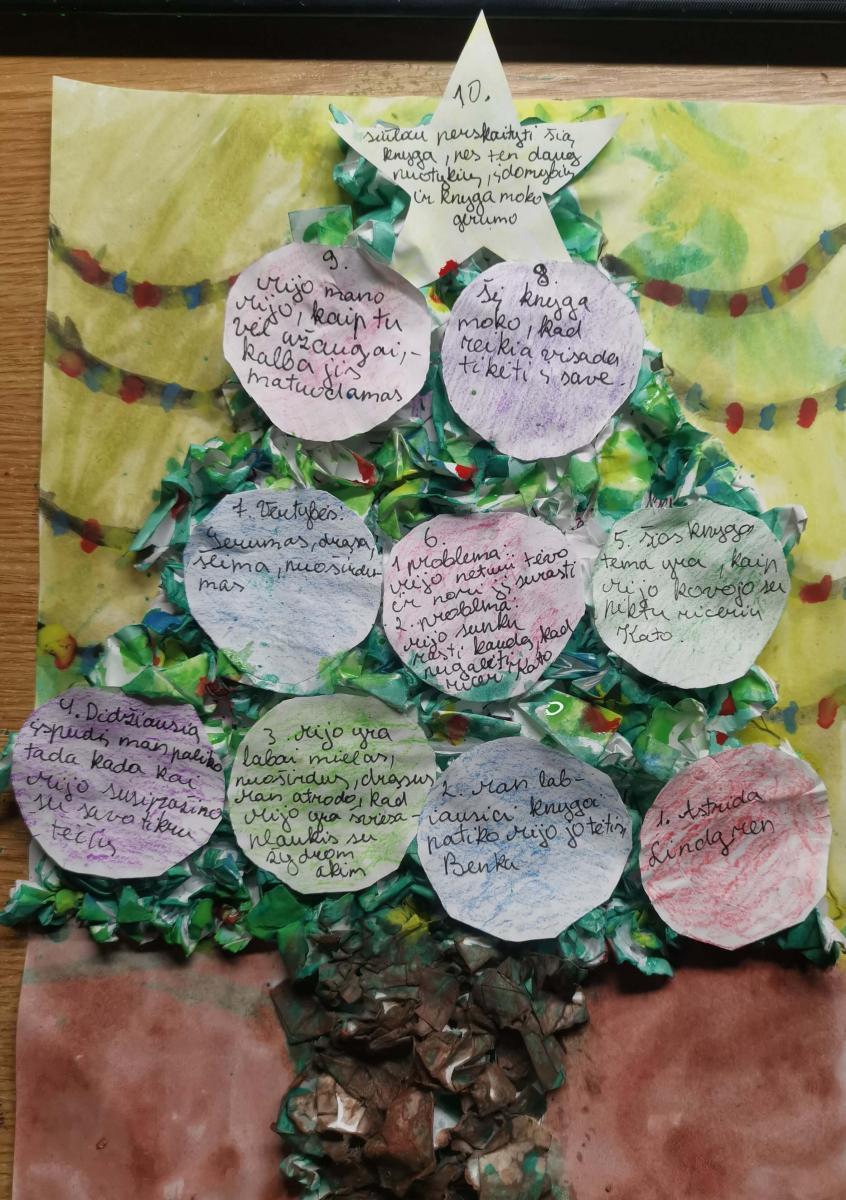 10.
siūlau perskaityti šią
knygą, nes ten daug
nuotykių, įdomybių
ir knyga moko
gerumo
9.
mijo mano
mijo, kaip tu
vėl užaugai, -
kalba jis
matuodamas
8.
Šį knyga
moko, kad
reikia visada
tikėti į save.
7. Vertybės:
Gerumas, drąsa,
šeima, nuoširdu-
mas
6.
1 problema:
mijo neturi tėvo
ir nori jį surasti
2. problema:
mijo sunku
rasti kardą, kad
nugalėti
ricer Kato
5. šios knygo
tema yra, kaip
mijo kovojo su
piktu riceriu
Kato.
4. Didžiausią
įspudį man paliko
tada kada kai
mijo susipažino
su savo tikru
tėčių
3. mijo yra
labai mielas,
nuoširdus, drąsus
man atrodo, kad
mijo yra šviesa-
plaukis su
žydrom
akim
2. man lab-
iausiai knyga
patiko mijo jo tėtis,
Benka
1. Astrida
Lindgren